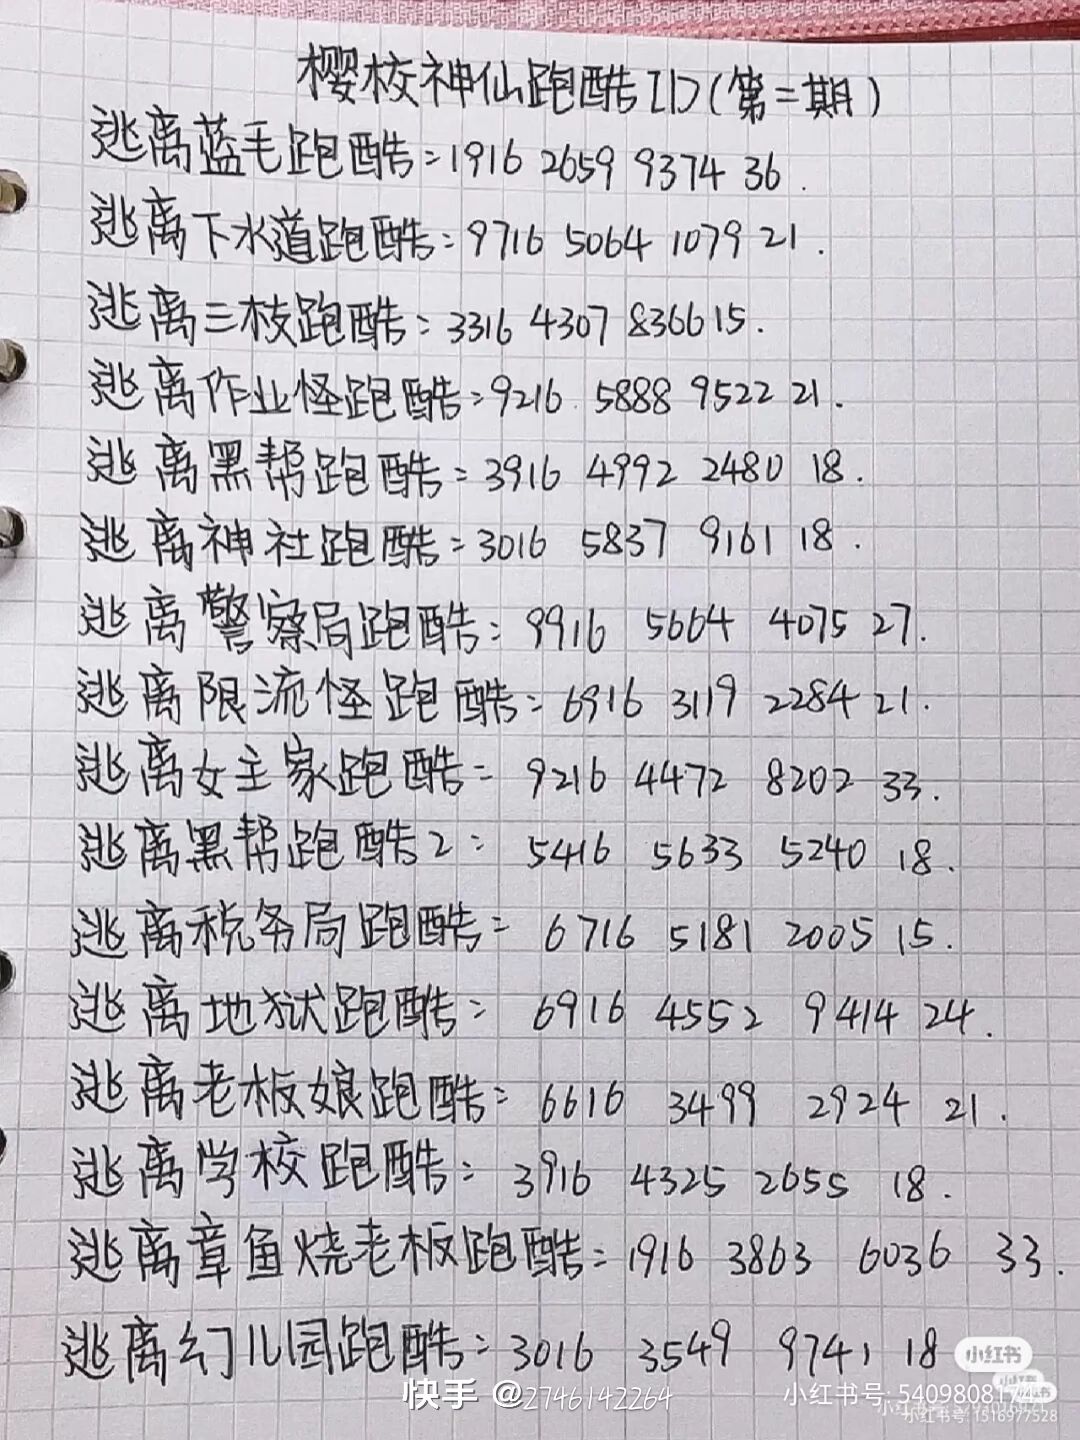 樱校神仙跑酷ID(第二期)
逃离蓝毛跑酷:1916 2659 9374 36.
逃离下水道跑酷:9716 5064 1079 21.
逃离三枝跑酷:3316 4307 8366 15.
逃离作业怪跑酷:9216 5888 9522 21.
逃离黑帮跑酷:3916 4992 2480 18.
逃离神社跑酷:3016 5837 9161 18.
逃离警察局跑酷:9916 5664 4075 27.
逃离限流怪跑酷:6916 3119 2284 21.
逃离女主家跑酷:9216 4472 8202 33.
逃离黑帮跑酷2:5416 5633 5240 18.
逃离税务局跑酷:6716 5181 2005 15.
逃离地狱跑酷:6916 4552 9414 24.
逃离老板娘跑酷:6616 3499 2924 21.
逃离学校跑酷:3916 4325 2655 18.
逃离章鱼烧老板跑酷:1916 3863 6036 33.
逃离幻儿园跑酷:3016 3549 9741 18
小红书
快手 @2746142264
小红书号: 5409808174
小红书号: 1516977528